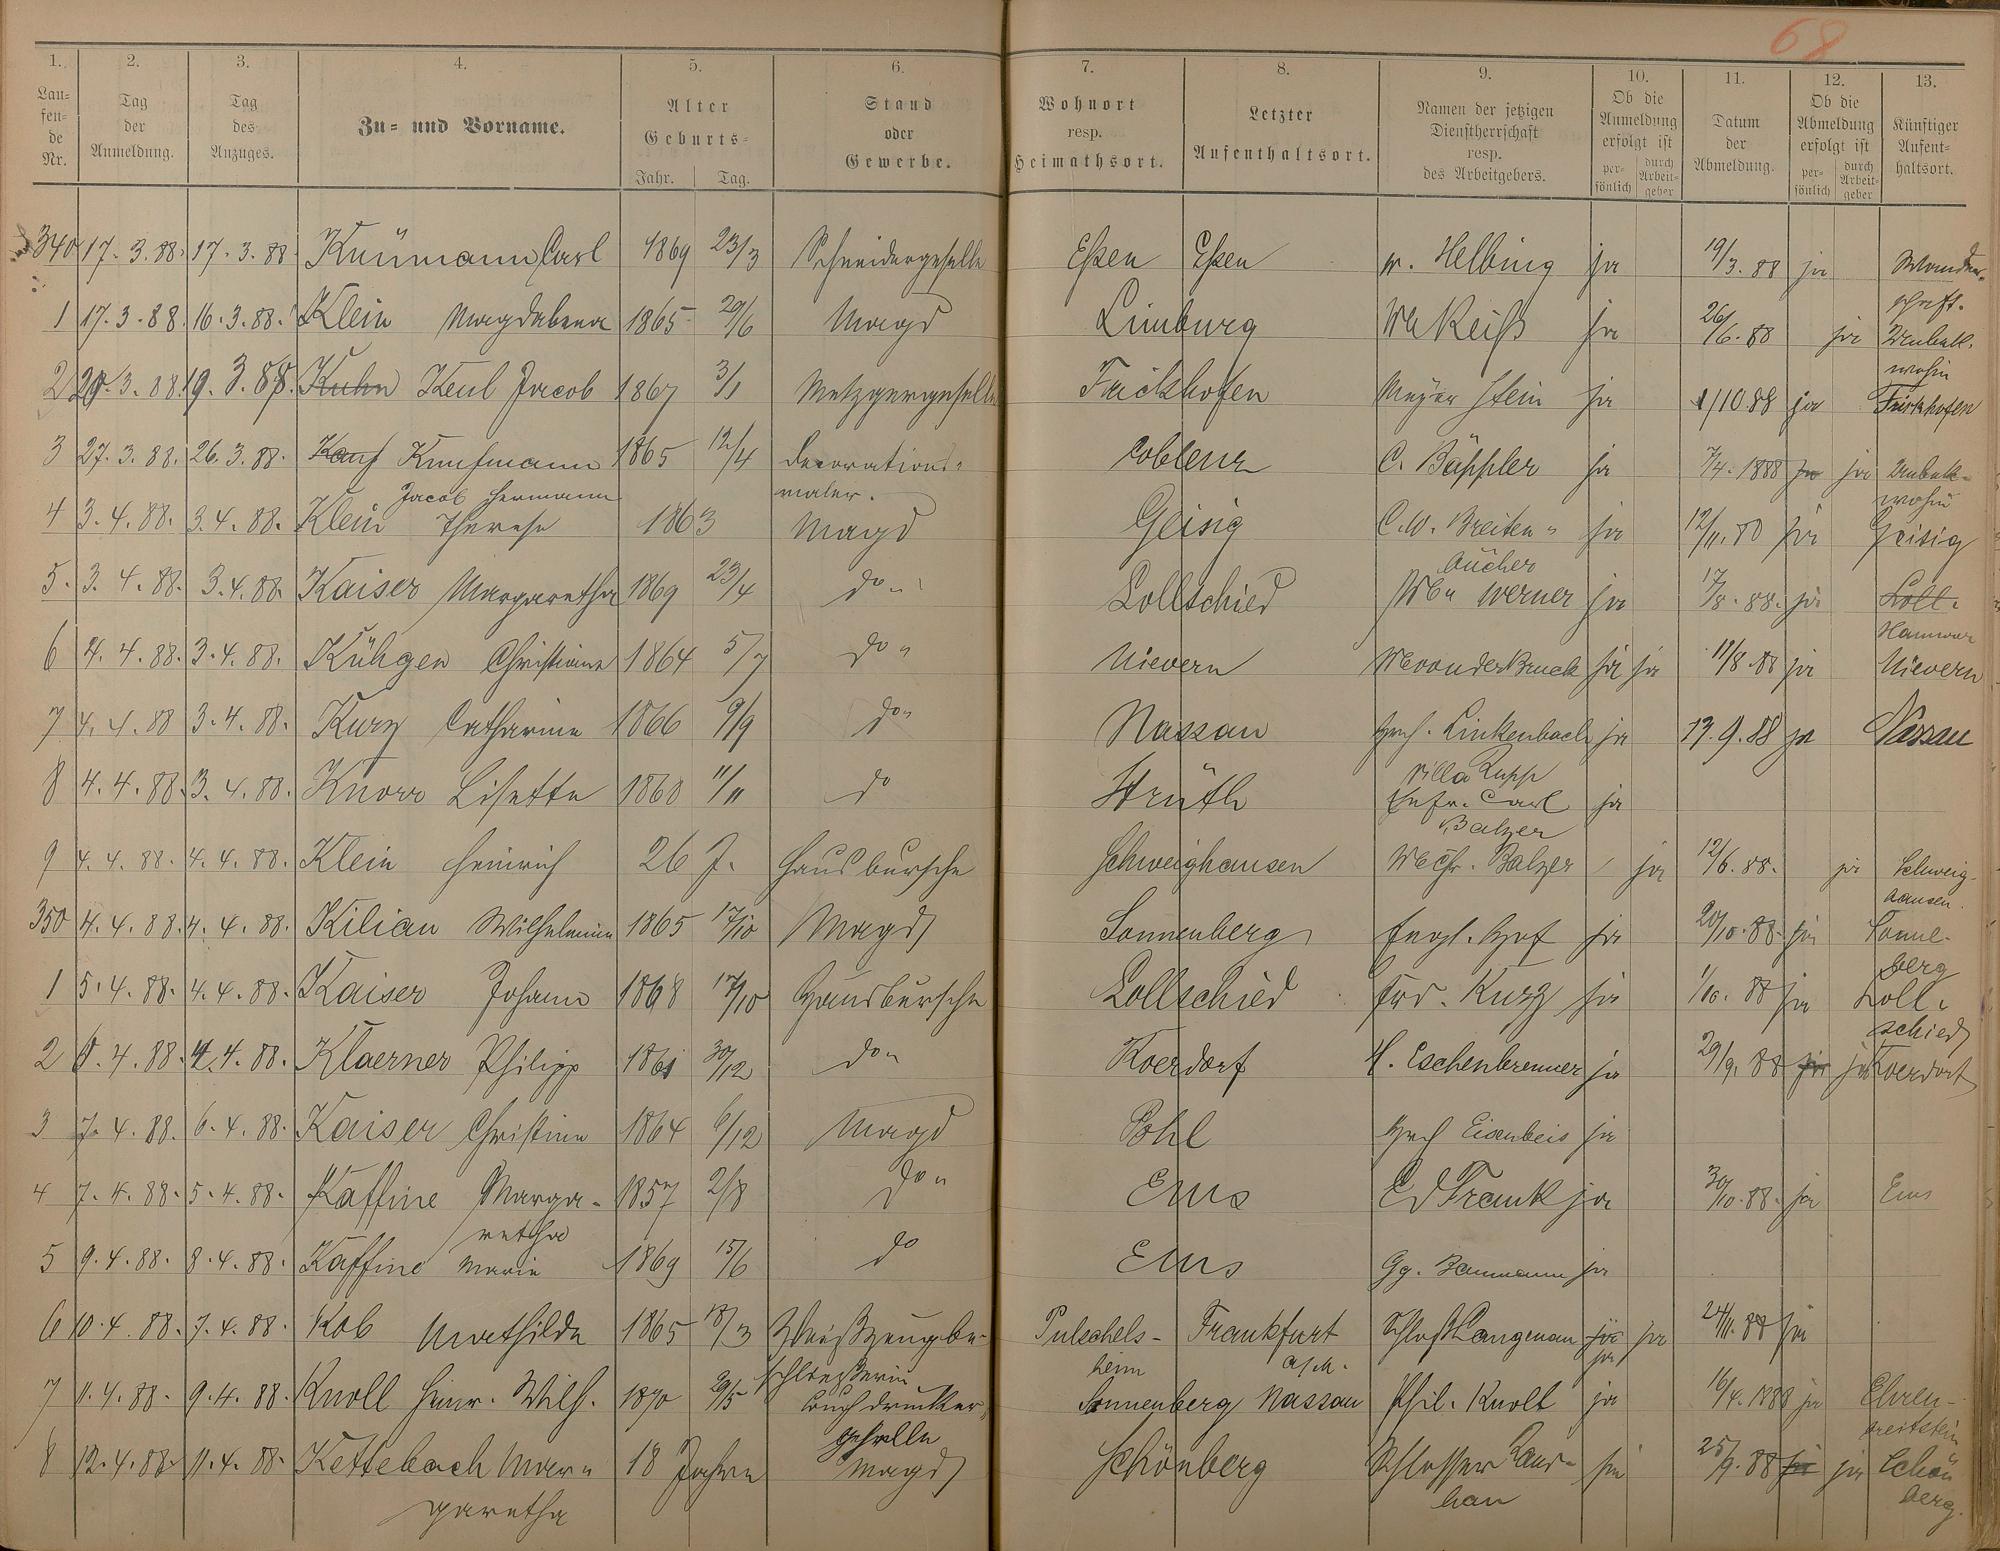 68
1. 2. 3. 4. 5. 6. 7. 8. 9. 10. 11. 12. 13.
Lau-
fen-
de
Nr.
Tag
der
Anmeldung.
Tag
des
Anzuges.
Zu- und Vorname.
Alter
Geburts-
Jahr. Tag.
Stand
oder
Gewerbe.
Wohnort
resp.
Heimathsort.
Letzter
Aufenthaltsort.
Namen der jetzigen
Dienstherrschaft
resp.
des Arbeitgebers.
Ob die
Anmeldung
erfolgt ist
per-
sönlich
durch
Arbeit-
geber
Datum
der
Abmeldung.
Ob die
Abmeldung
erfolgt ist
per-
sönlich
durch
Arbeit-
geber
Künftiger
Aufent-
haltsort.
340 17. 3. 88. 17. 3. 88 Carl 1869 23/3 Schneidergeselle Eßen Eßen w. Helbing ja 19/3. 88 ja Wander-
schaft.
1 17. 3. 88. 16. 3. 88. Klein Magdalena 1865 29/6 Magd Limburg Reiß ja 26/6. 88 ja Unbek.
wohin
2 20. 3. 88. 19. 3. 88. Kuhn Keul Jacob 1867 3/1 Metzgergeselle Frickhofen Meyer Stein ja 1/10 88 ja Frickhofen
3 27. 3. 88. 26. 3. 88. Kauf Kaufmann 1865 12/4 Decorations- Coblenz C. Bäppler ja 7/4. 1888 ja ja Unbek-
Jacob Hermann maler. wohin
4 3. 4. 88. 3. 4. 88. Klein Therese 1863 Magd Geisig C. W. Breiten- ja 12/11. 88 ja Geisig
bücher
5. 3. 4. 88. 3. 4. 88. Kaiser Margaretha 1869 23/4 do Lollschied Werner ja 17/8. 88. ja Loll.
Hannover
6 4. 4. 88. 3. 4. 88. Kühgen Christiane 1864 5/7 do Nievern ja ja 11/8. 88 ja Nievern
7 4. 4. 88 3. 4. 88. Kurz Catharine 1866 9/9 do Nassau Linkenbach ja 13. 9. 88 ja Nassau
Villa Rupp
8 4. 4. 88. 3. 4. 88. Knorr Lisette 1868 11/11 do Strüth Carl ja
Balzer
9 4. 4. 88. 4. 4. 88. Klein Heinrich 26 J. Hausbursche Schweighausen Chr. Balzer ja 12/6. 88. ja Schweig-
hausen.
350 4. 4. 88. 4. 4. 88. Kilian Wilhelmine 1865 17/10 Magd Sonnenberg Engl. Hof ja 20/10. 88. ja Sonne-
berg
1 5. 4. 88. 4. 4. 88. Kaiser Johann 1868 17/10 Hausbursche Lollschied Frd. Kurz ja 1/10. 88 ja Loll-
schied
2 5. 4. 88. 4. 4. 88. Klaerner Philipp 1861 30/12 do Koerdorf H. Eschenbrenner ja 29/9. 88 ja ja Koerdorf
3 7. 4. 88. 6. 4. 88. Kaiser Christine 1864 6/12 Magd Pohl Eisenbeis ja
4 7. 4. 88. 5. 4. 88. Kaffine Marga- 1857 2/8 do Ems Ed Frank ja 30/10. 88. ja Ems
retha
5 9. 4. 88. 8. 4. 88. Kaffine Marie 1869 15/6 do Ems Gg. Baumann ja
6 10. 4. 88. 7. 4. 88. Kob Mathilde 1865 18/3 Weißzeugbe- Frankfurt Schloß Langenau ja ja 24/11. 88 ja
schließerin heim a/M. ja
7 11. 4. 88. 9. 4. 88. Knoll Heinr. Wilh. 1870 29/5 Buchdrucker- Sonnenberg Nassau Phil. Knoll ja 16/4. 1888 ja Ehren-
gehülfe breitstein
8 12. 4. 88. 11. 4. 88. Kettebach Mar- 18 Jahre Magd Schönberg Schlosser ja 25/9. 88 ja ja Schön
garetha berg.